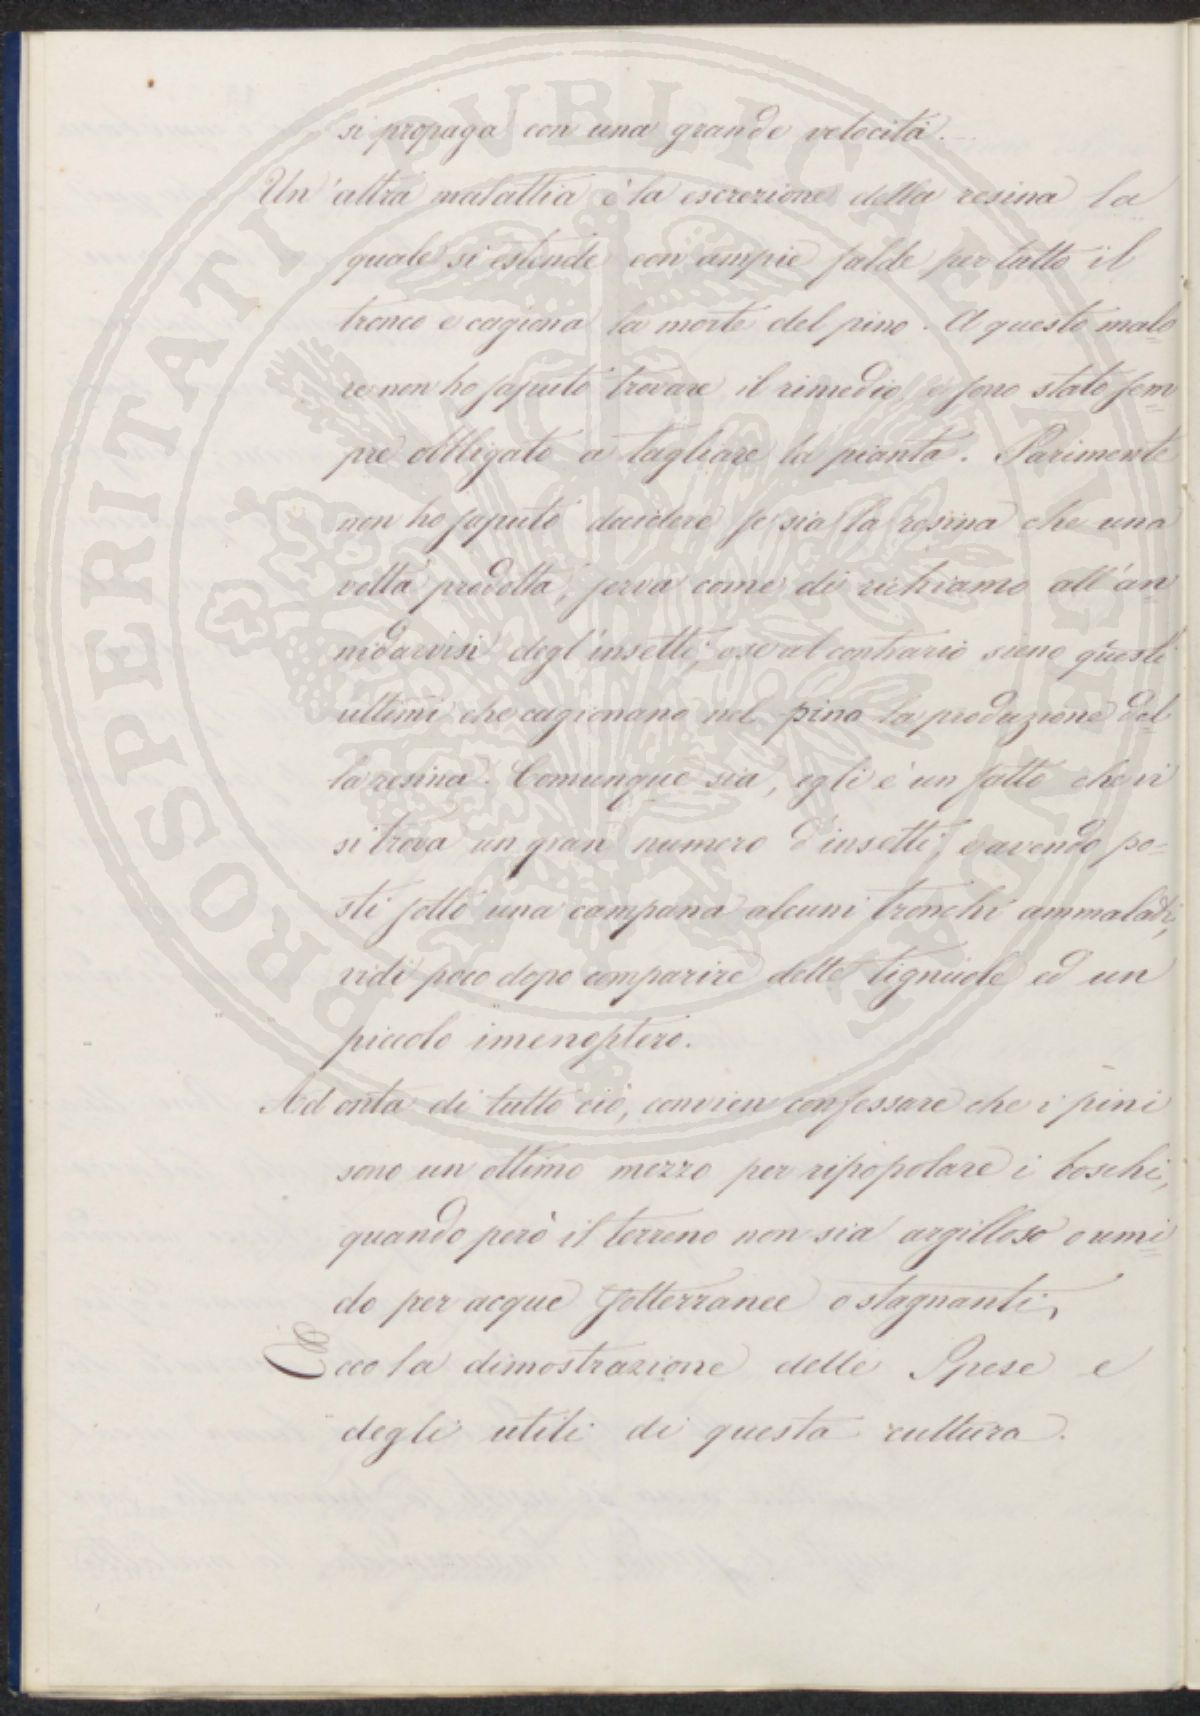 si propaga con una grande velocità.
Un'altra malattia è la escrezione della resina la
quale si estende con ampie falde per tutto il
tronco e cagiona la morte del pino. A questo malo=
re non ho saputo trovare il rimedio, e sono stato sem=
pre obbligato a tagliare la pianta. Parimente
non ho saputo decidere se sia la resina che una
volta prodotta, serva come di richiamo all'an=
nidarvisi degl'insetti, o se al contrario sieno questi
ultimi che cagionano nel pino la produzione del=
la resina. Comunque sia, egli è un fatto che vi
si trova un gran numero d'insetti, e avendo po=
sti sotto una campana alcuni tronchi ammalati,
vidi poco dopo comparire delle tignuole ed un
piccolo imenoptero.
Ad onta di tutto ciò, convien confessare che i pini
sono un ottimo mezzo per ripopolare i boschi,
quando però il terreno non sia argilloso o umi=
do per acque sotterranee o stagnanti,
Ecco la dimostrazione delle Spese e
degli utili di questa cultura.
PROSPERITATI PVBLICAE AVGENDAE